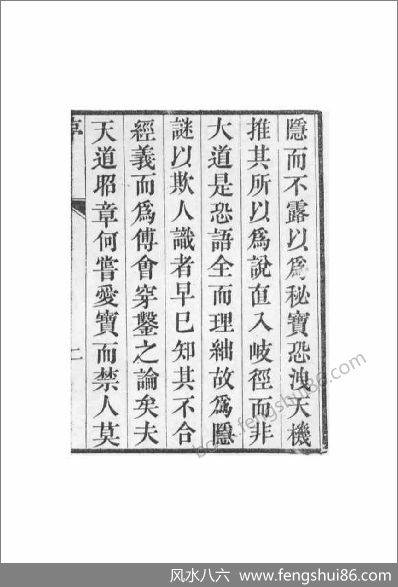 隱而不露以爲秘寶恐洩天機
推其所以爲說直入歧徑而非
大道是恐語全而理絀故爲隱
謎以欺人識者早已知其不合
經義而爲傅會穿鑿之論矣夫
天道昭章何嘗愛寶而禁人莫
二
bgw.fengshui86.com
风水八六 www.fengshui86.com